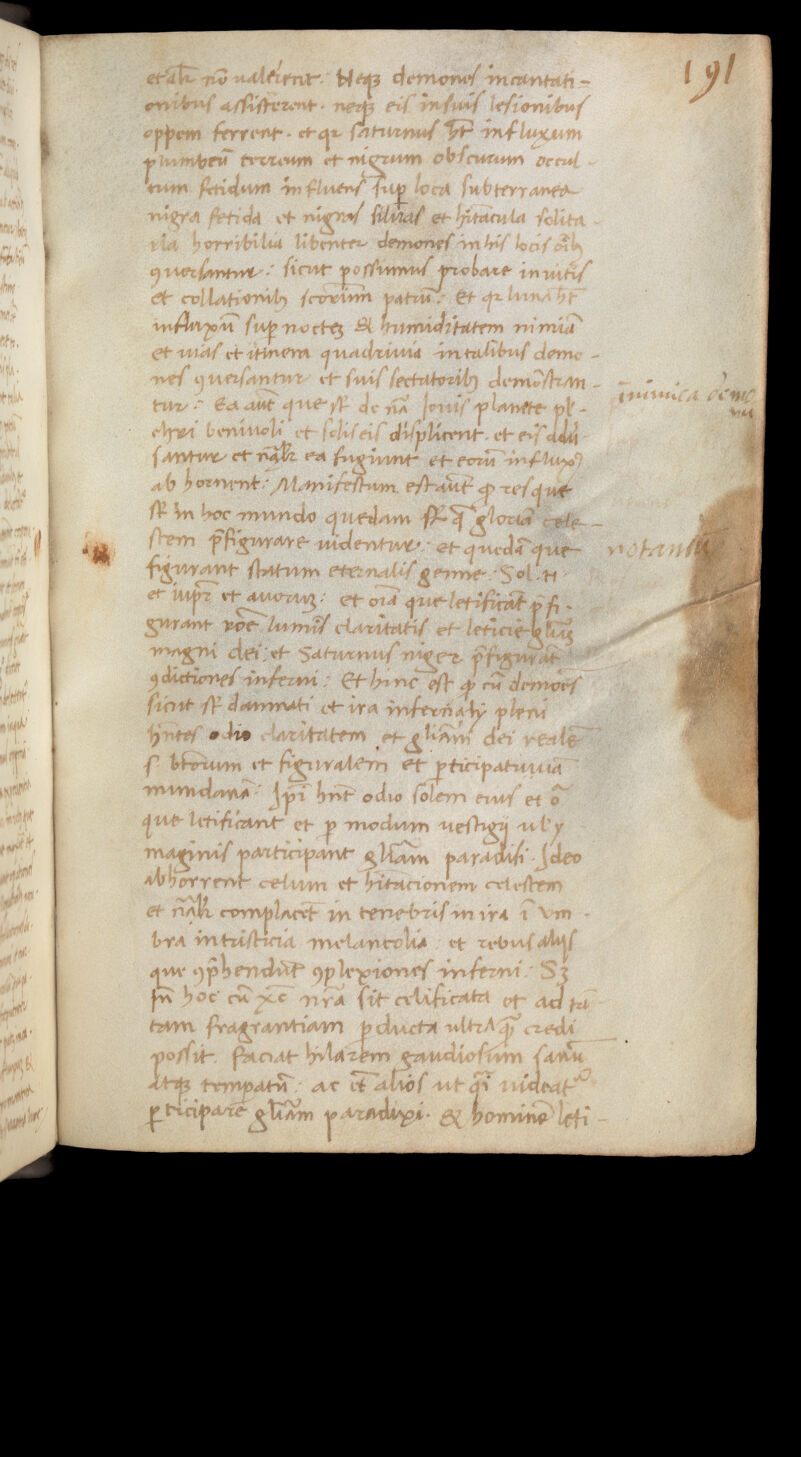 191
non valerent. Neqꝫ demones incantati-
onibus assisterent. neqꝫ eis in suis lesionibus
oppem ferrent. et qr saturnus ht̄ influxum
plumbeū terreum et nigrum obscurum occul-
tum fetidum influens sup̄ loca subterranea
nigra fetida et nigras silvas et hītacula solita-
ria horribilia libenter demones in his locis
ꝯversantur: sicut possumus probare in vitis
et collationibꝫ scōrum patrū: Et qr luna ht̄
influxū sup̄ noctes & humiditatem nimiā
et vias et itinera quadrivia in talibus demo-
nes ꝯversantur et suis sectatoribꝫ demōstran-
tur: Ea aūt que st̄ de nā Iovis planete pl-
chri benivoli et solis eis displicent. et eis
santur et nāl'r ea fugiunt et eorū influxꝫ
ab horrent: Manifestum est aūt ꝙ res que
st̄ in hoc mundo quedam st̄ gloriam cele-
stem p̄figurare videntur: et quedā que
figurant statum eternalis genne. Sol.
et iupr̄ et aurum: et oīa que letificāt p̄fi-
gurant lumīs claritatis et leticie gl̄iā
magni dei: et Saturnus niger p̄figurat
ꝯdictiones inferni: Et hinc est ꝙ cū demōēs
sicut st̄ damnati et ira infernali pleni
hn̄tes odio claritatem et gliām dei realē
s. btōrum et figuralem et participativā
mundanā: Ip̄i hn̄t odio solem eius et oīa
que letificant et per modum vestigii ul' y
maginis participant gliām paradisi. Ideo
abhorrent celum et hitācionem celestem
et nāl'r complacēt in tenebris in ira ī vm-
bra in tristicia melancolia: et rebus aliis
que ꝯp̄hendūt ꝯplexiones inferni: Sꝫ
in hoc cū xc̄ nr̄a sit celificata et ad tā-
tam fragrantiam p̱ducta ultra qm̄ credi
possit. faciat hilarem gaudiosum sanū
atqꝫ tempatū: ac et̄ alios ut qī videat
p̱ticipare gliām paradixi. & hominē leti-
inimica demo
ni
notanda